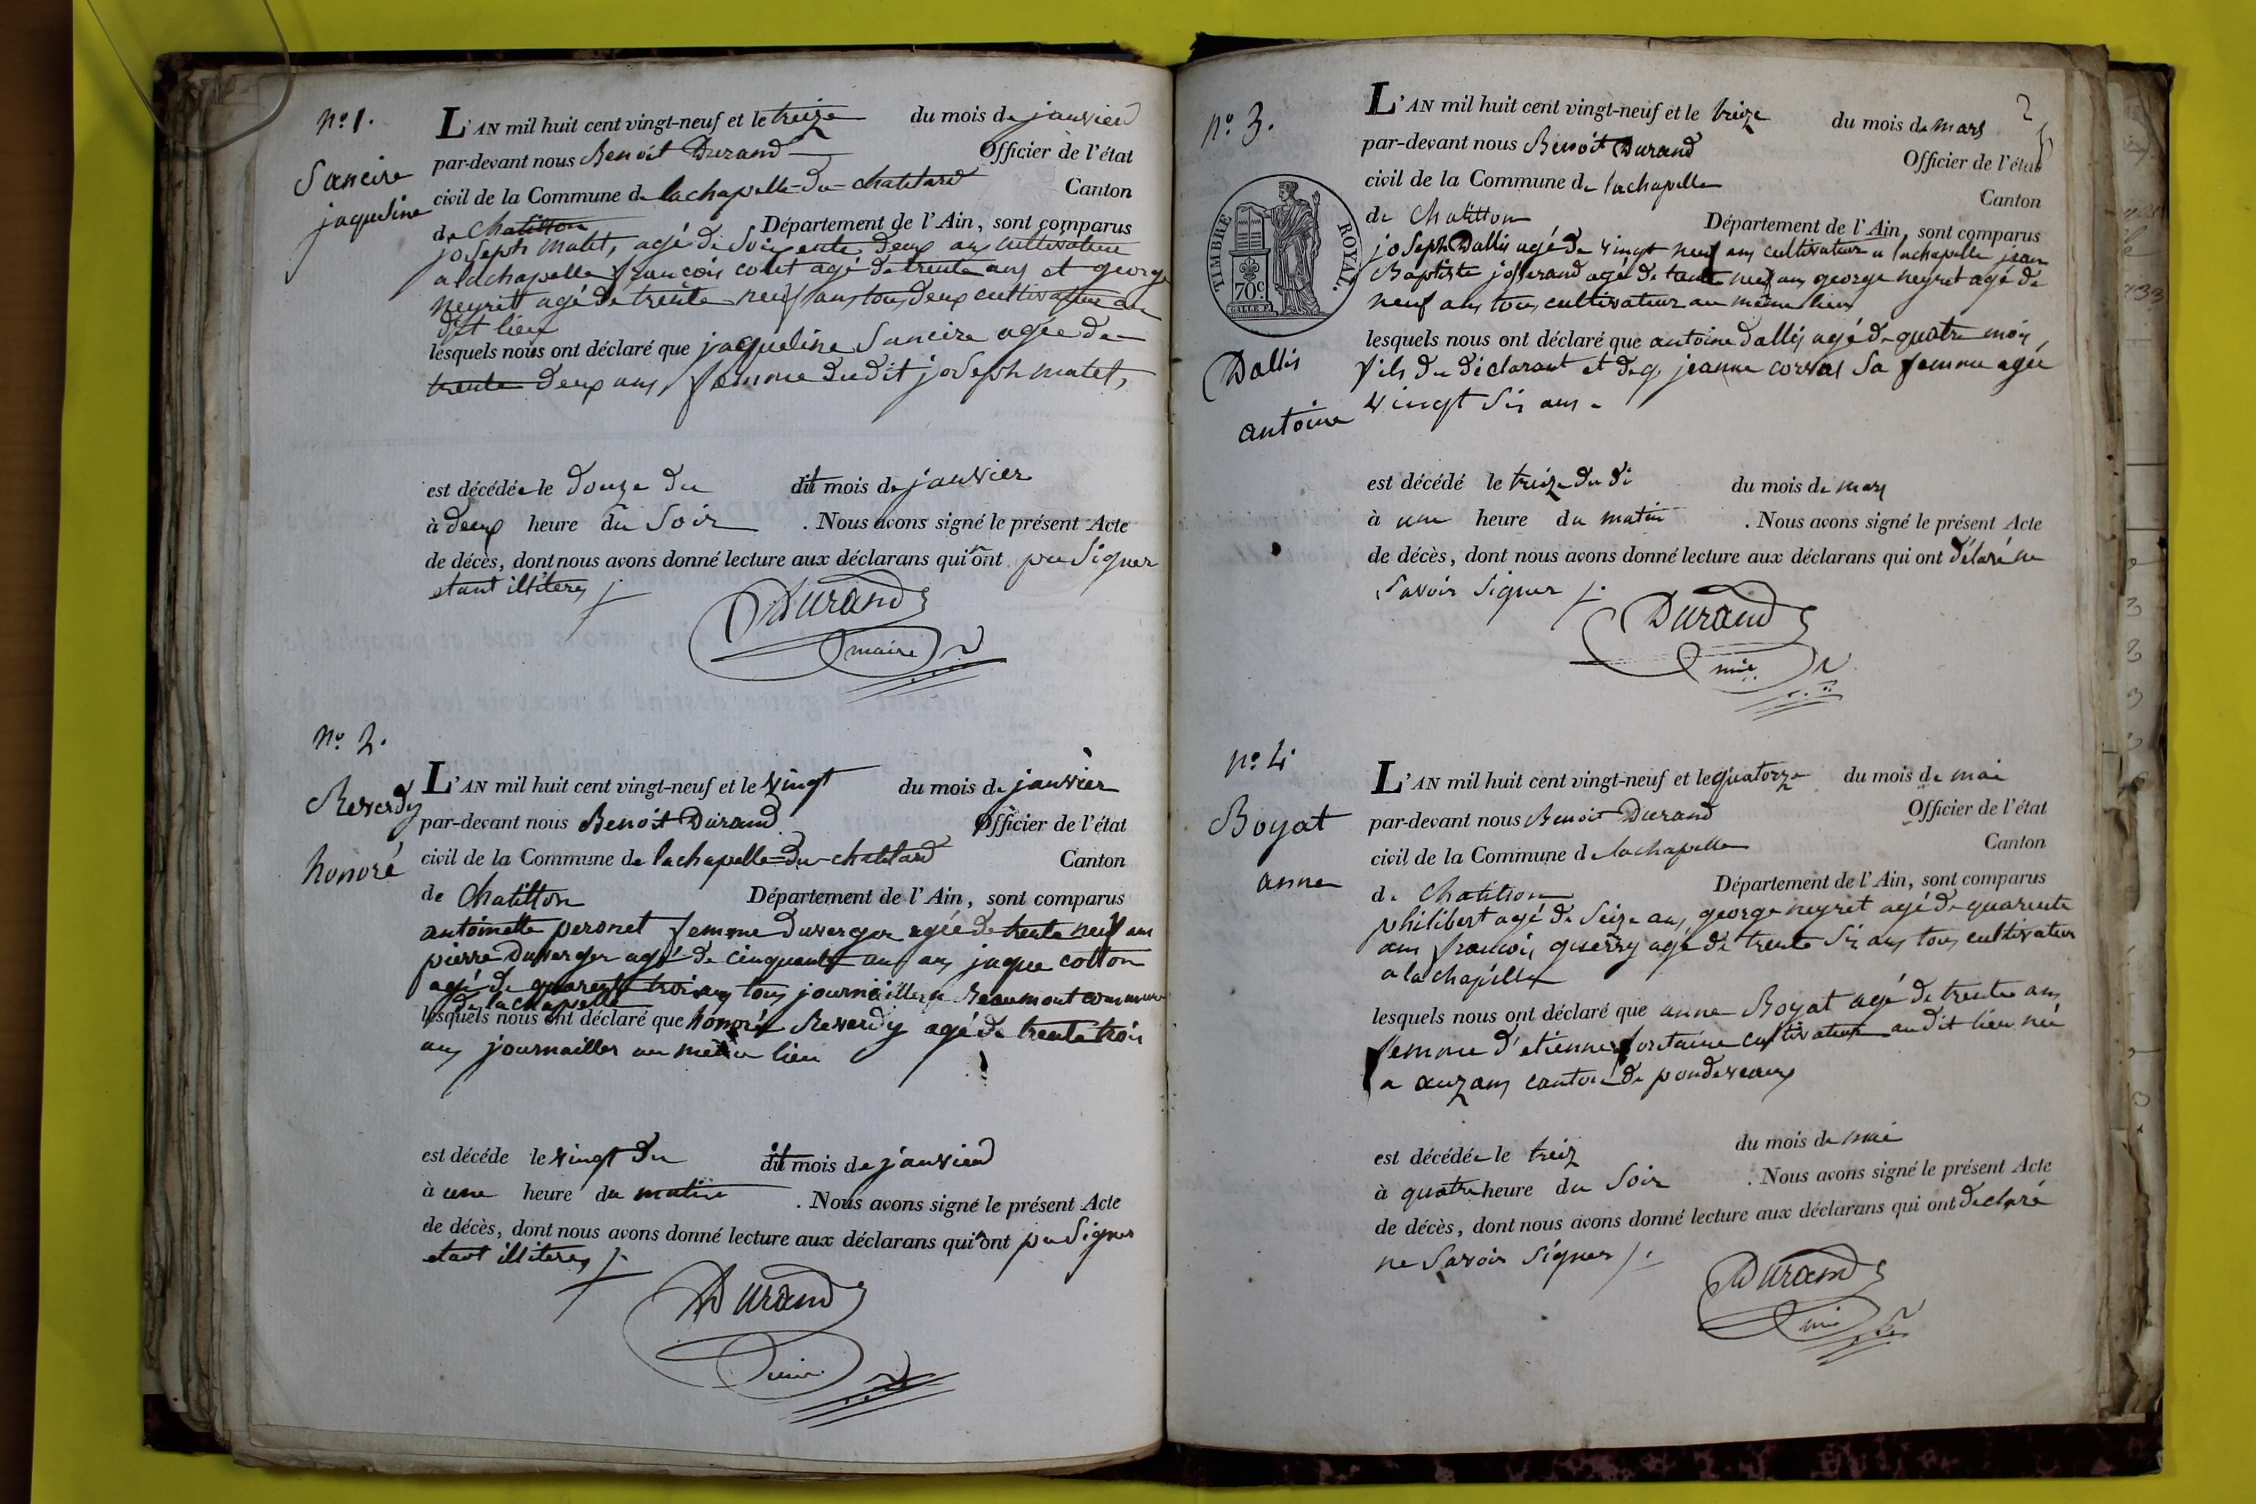 n.o 1.
Sancire
jaqueline
L'AN mil huit cent vingt-neuf et le treize du mois de janvier
par-devant nous Benoit Durand Officier de l'état
civil de la Commune de lachapelle-du-chatelard Canton
de Chatillon Département de l'Ain, sont comparus
joseph Matet, agé de Soixente deux ans cultivateur
a lachapelle francois colet agé de trente ans et george
neyret agé de trente neuf ans tous deux cultivateur au
dit lieu
lesquels nous ont déclaré que jaqueline Sancire agée de
trente deux ans, femme dudit joseph matet,
est décédée le douze du dit mois de janvier
à deux heure du Soir . Nous avons signé le présent Acte
de décès, dont nous avons donné lecture aux déclarans qui n'ont pu Signer
etant illiteres
Durand
maire
n.o 2.
Reverdy
honoré
L'AN mil huit cent vingt-neuf et le vingt du mois de janvier
par-devant nous Benoit Durand Officier de l'état
civil de la Commune de lachapelle-du-chatelard Canton
de Chatillon Département de l'Ain, sont comparus
antoinette peronet femme Duverger agée de trente neuf ans
pierre Duverger agé de cinquante un ans jaque cotton
agé de quarente trois ans tous journaillers a Beaumont commune
de lachapelle
lesquels nous ont déclaré que honoré Reverdy agé de trente trois
ans journailler au même lieu
est décéde le vingt du dit mois de janvier
à une heure du matin . Nous avons signé le présent Acte
de décès, dont nous avons donné lecture aux déclarans qui n'ont pu Signer
etant illiteres
Durand
n.o 3.
TIMBRE ROYAL.
70c
Dallis
antoine
L'AN mil huit cent vingt-neuf et le treize du mois de mars
par-devant nous Benoit Durand Officier de l'état
civil de la Commune de lachapelle Canton
de Chatillon Département de l'Ain, sont comparus
joseph Dallis agé de vingt neuf ans cultivateur a lachapelle jean
Baptiste josserand agé de trente neuf ans george neyret agé de
neuf ans tous cultivateur au même lieu
lesquels nous ont déclaré que antoine dallis agé de quatre mois
fils du déclarant et de jeanne sa femme agée
vingt Six ans
est décédé le treize du di du mois de mars
à une heure du matin . Nous avons signé le présent Acte
de décès, dont nous avons donné lecture aux déclarans qui ont déclaré ne
Savoir Signer
Durand
n.o 4
Boyat
anne
L'AN mil huit cent vingt-neuf et le quatorze du mois de mai
par-devant nous Benoit Durand Officier de l'état
civil de la Commune de lachapelle Canton
de Chatillon Département de l'Ain, sont comparus
philibert agé de Seize ans, george neyret agé de quarente
ans francois guerry agé de trente Six ans tous cultivateur
a lachapelle
lesquels nous ont déclaré que anne Boyat agé de trente ans
femme d'etienne fontaine cultivateur au dit lieu née
a canton de pondeveaux
est décédée le treiz du mois de mai
à quatre heure du Soir . Nous avons signé le présent Acte
de décès, dont nous avons donné lecture aux déclarans qui ont declaré
ne Savoir Signer
Durand